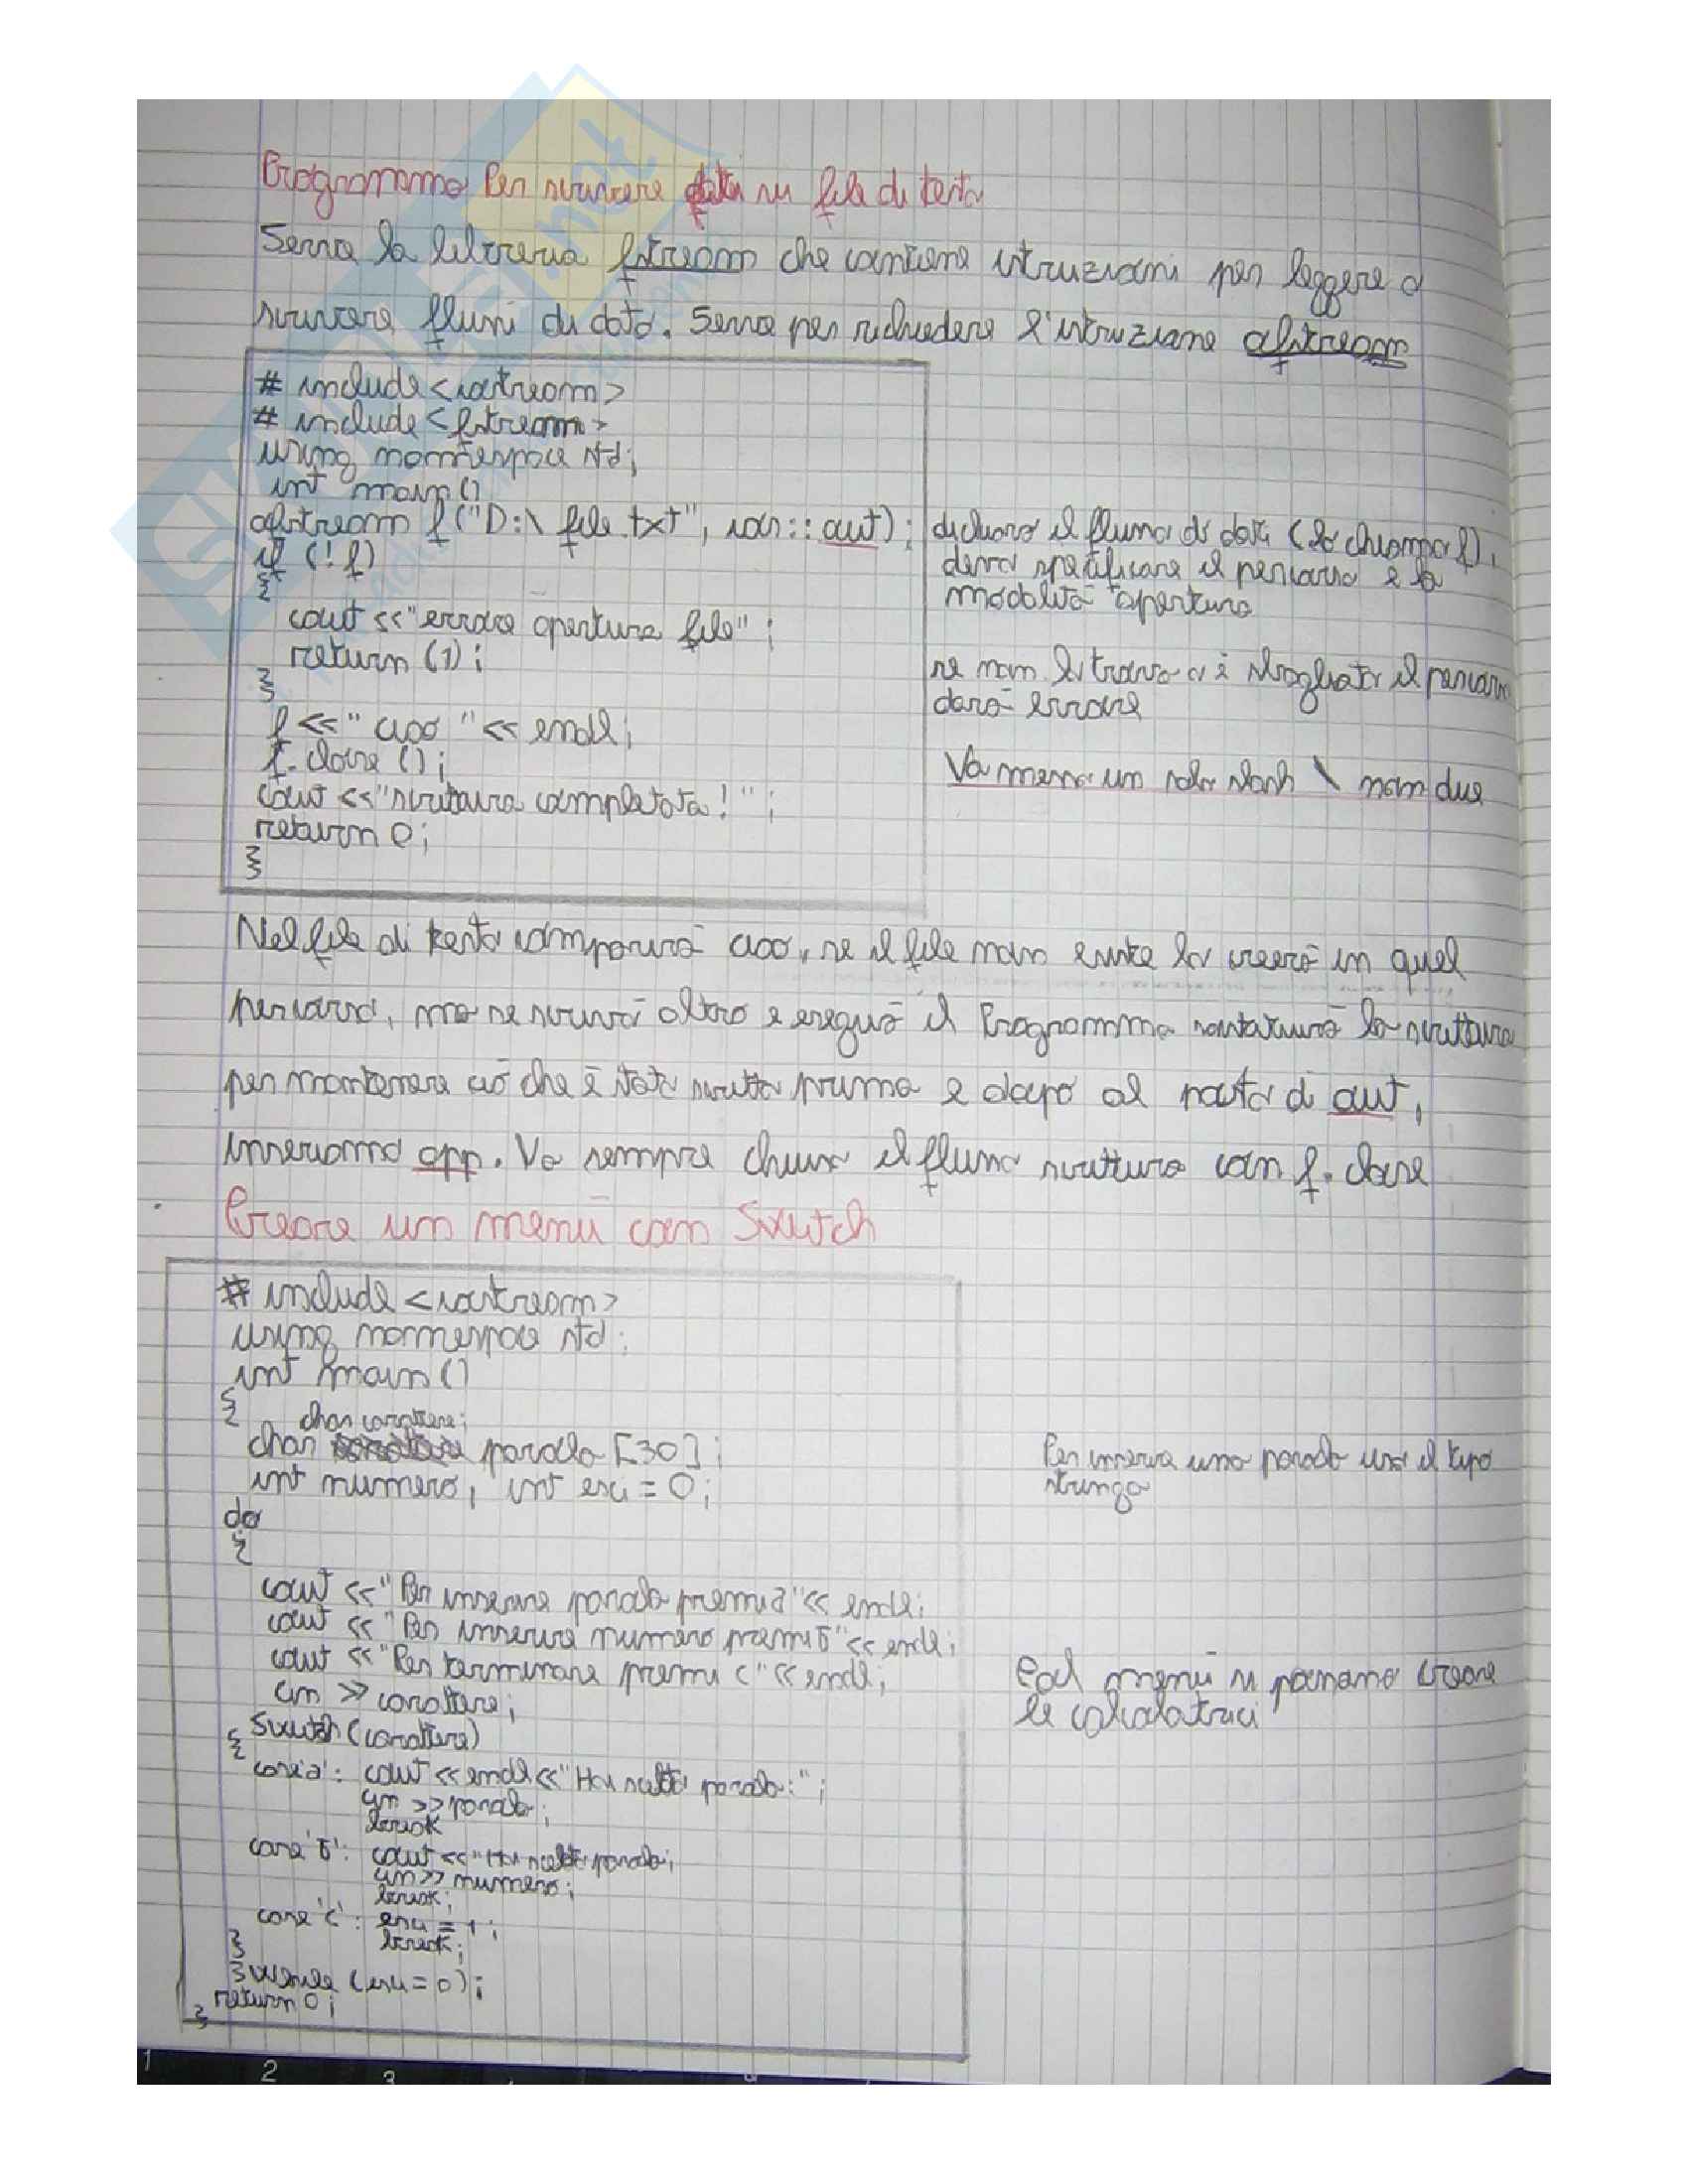 Programma Per scrivere su file di testo
Serve la libreria fstream che contiene istruzioni per leggere o
scrivere flussi di dato. Serve per richiedere l'istruzione ofstream
# include<iostream>
# include<fstream>
using namespace std;
int main()
ofstream f("D:\ file.txt", ios::out); dichiaro il flusso di dati (lo chiamo f),
if (!f)
devo specificare il percorso e la
{
modalità apertura
cout <<"errore apertura file";
return (1);
se non lo trova o è sbagliato il percorso
}
darà errore
f <<" ciao "<< endl;
f.close ();
Va messo un solo slash \ non due
cout <<"scrittura completata!";
return 0;
}
Nel file di testo comparirà ciao, se il file non esiste lo creerà in quel
percorso, ma se scrivi altro e esegui il Programma sostituirà la scrittura
per mantenere ciò che è stato scritto prima e dopo al posto di out,
inseriamo app. Va sempre chiuso il flusso scrittura con f.close
Creare un menù con Switch
# include<iostream>
using namespace std;
int main()
{
char carattere;
char parola [30];
Per inserire una parola uso il tipo
int numero, int esci = 0;
stringa
do
{
cout <<"Per inserire parola premi a"<< endl;
cout <<"Per inserire numero premi b"<< endl;
cout <<"Per terminare premi c"<< endl;
Col menù si possono creare
cin >> carattere;
le calcolatrici
switch(carattere)
{
case'a': cout <<endl<<"Hai scelto parola:";
cin >>parola;
break
case'b': cout <<"Hai scelto parola;
cin>> numero;
break;
case'c': esci = 1;
break;
}
}while (esci = 0);
return 0;
}
1 2 3